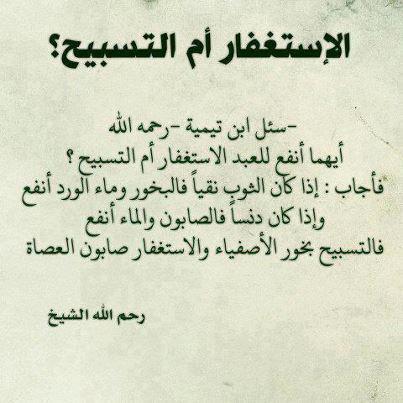 الإستغفار أم التسبيح؟
-سئل ابن تيمية -رحمه الله
أيهما أنفع للعبد الاستغفار أم التسبيح ؟
فأجاب : إذا كان الثوب نقياً فالبخور وماء الورد أنفع
وإذا كان دنساً فالصابون والماء أنفع
فالتسبيح بخور الأصفياء والاستغفار صابون العصاة
رحم الله الشيخ